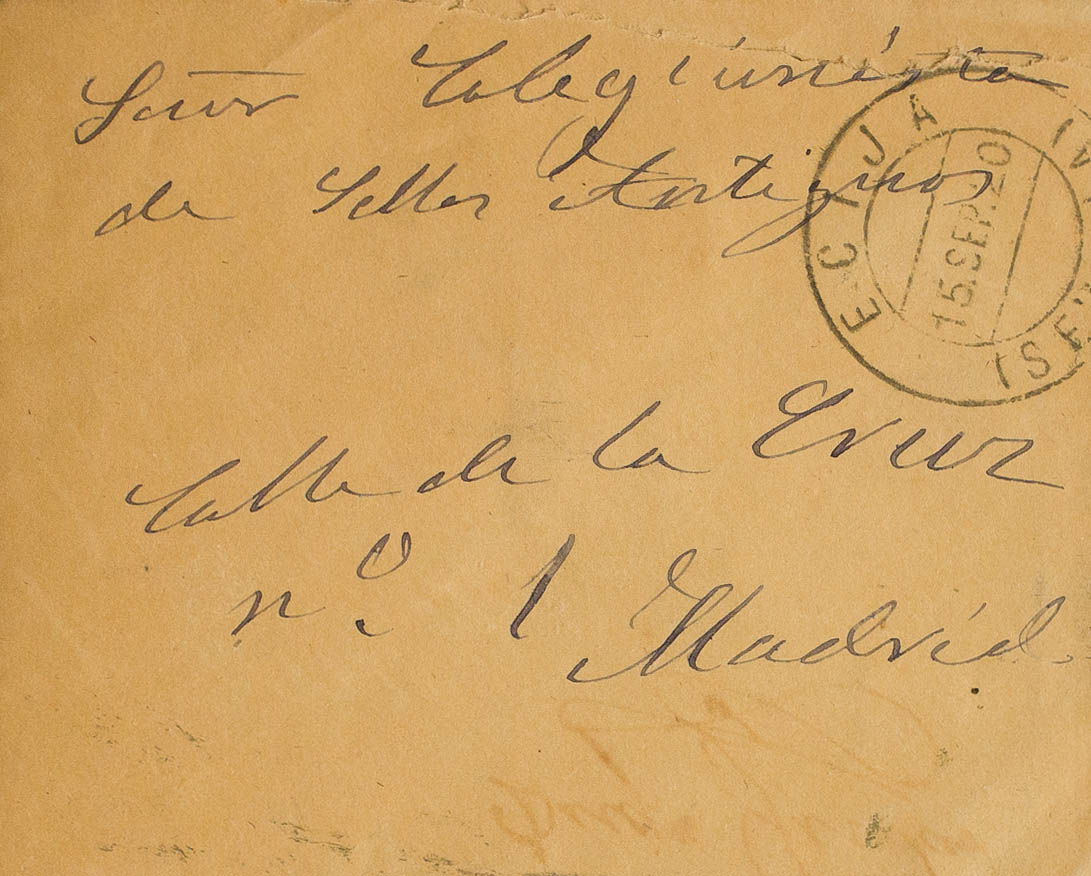 Señor Colegiunista
de Sellos Antiguos
Calle de la Cruz
nº 1 Madrid
ECIJA
15.SEP.20
(SE